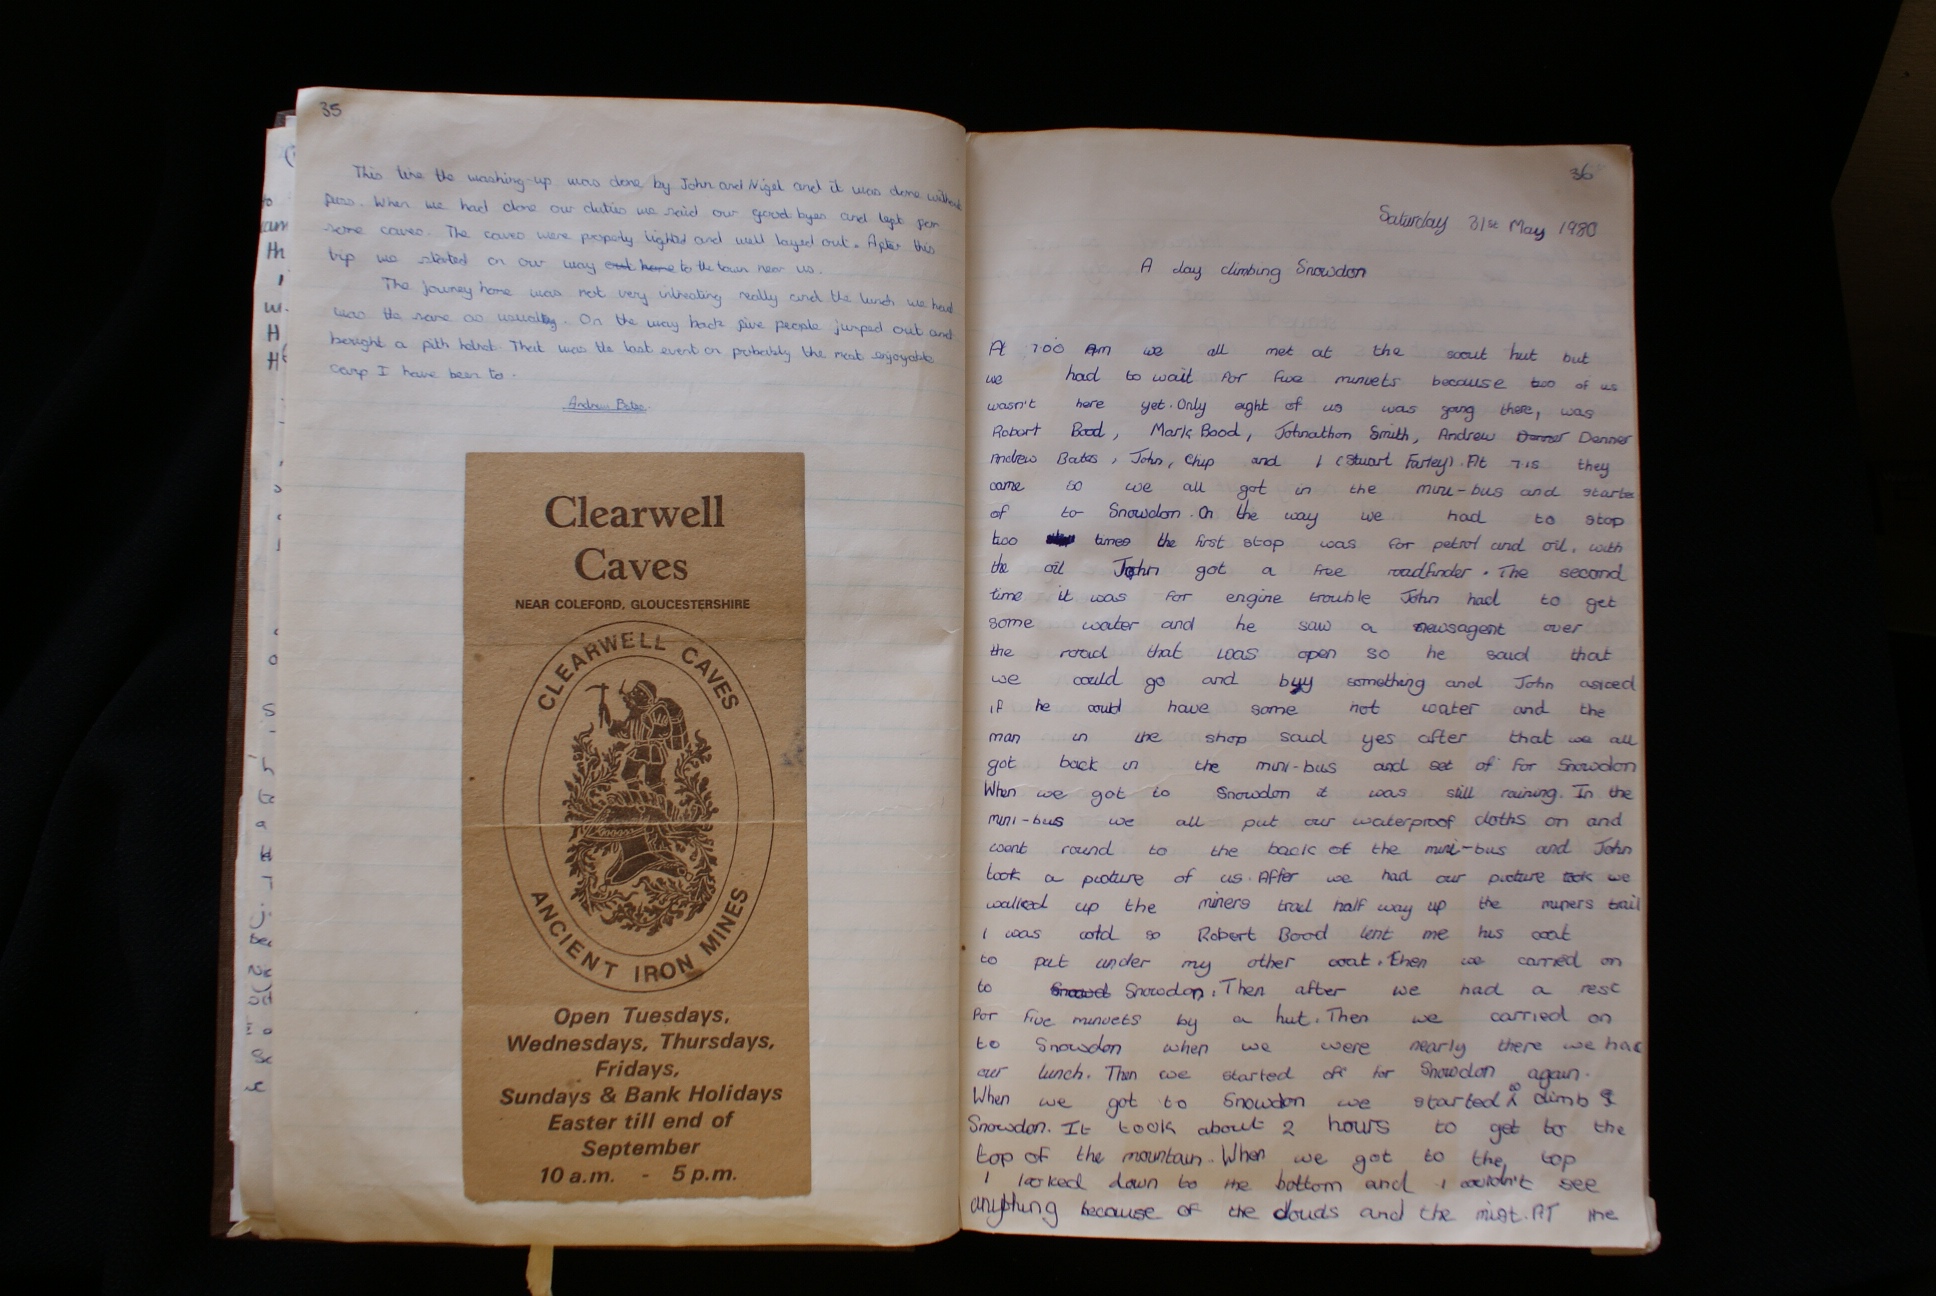 35
This time the washing-up was done by John and Nigel and it was done without
fuss. When we had done our duties we said our good byes and left for
some caves. The caves were properly lighted and well layed out. After this
trip we started on our way out home to the town near us.
The journey home was not very intresting really and the lunch we had
was the same as usually. On the way back five people jumped out and
bought a pith helmet. That was the last event on probably the most enjoyable
camp I have been to.
Andrew Bates
Clearwell
Caves
NEAR COLEFORD, GLOUCESTERSHIRE
CLEARWELL CAVES
ANCIENT IRON MINES
Open Tuesdays,
Wednesdays, Thursdays,
Fridays,
Sundays & Bank Holidays
Easter till end of
September
10 a.m. - 5 p.m.
36
Saturday 31st May 1980
A day climbing Snowdon
At 7.00 Am we all met at the scout hut but
we had to wait for five minuets because two of us
wasn't here yet. Only eight of us was going there, was
Robert Bood, Mark Bood, Johnathon Smith, Andrew Denner Denner
Andrew Bates, John, Chip and I (Stuart Farley). At 7.15 they
came so we all got in the mini-bus and started
of to Snowdon. On the way we had to stop
two times the first stop was for petrol and oil, with
the oil John got a free roadfinder. The second
time it was for engine trouble John had to get
some water and he saw a newsagent over
the road that was open so he said that
we could go and buy something and John asked
if he could have some hot water and the
man in the shop said yes after that we all
got back in the mini-bus and set of for Snowdon
When we got to Snowdon it was still raining. In the
mini-bus we all put our waterproof cloths on and
went round to the back of the mini-bus and John
took a picture of us. After we had our picture took we
walked up the miners trail half way up the miners trail
I was cold so Robert Bood lent me his coat
to put under my other coat. Then we carried on
to Snowd Snowdon. Then after we had a rest
for five minuets by a hut. Then we carried on
to Snowdon when we were nearly there we had
our lunch. Then we started off for Snowdon again.
When we got to Snowdon we started to climb
Snowdon. It took about 2 hours to get to the
top of the mountain. When we got to the top
I looked down to the bottom and I couldn't see
anything because of the clouds and the mist. AT the